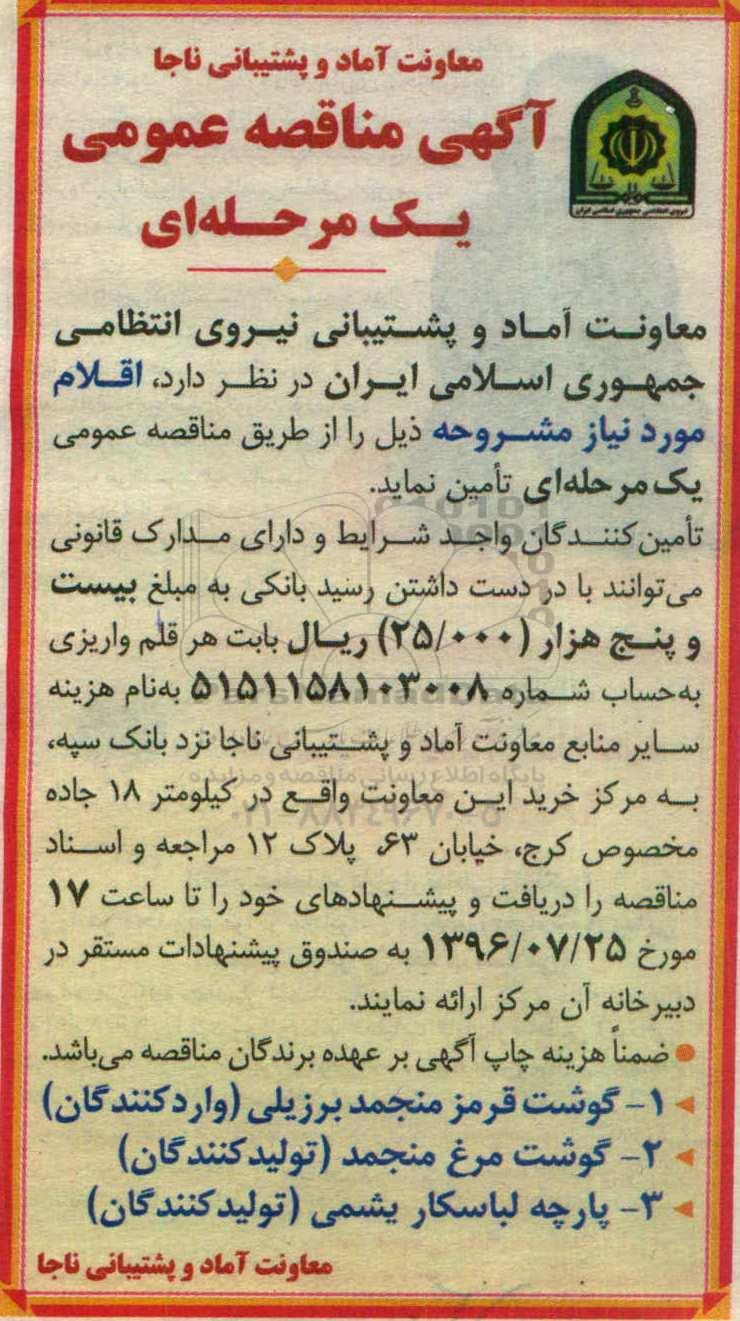 معاونت آماد و پشتیبانی ناجا
آگهی مناقصه عمومی
یک مرحله‌ای
نیروی انتظامی جمهوری اسلامی ایران
معاونت آماد و پشتیبانی نیروی انتظامی
جمهوری اسلامی ایران در نظر دارد، اقلام
مورد نیاز مشروحه ذیل را از طریق مناقصه عمومی
یک‌مرحله‌ای تأمین نماید.
تأمین‌کنندگان واجد شرایط و دارای مدارک قانونی
می‌توانند با در دست داشتن رسید بانکی به مبلغ بیست
و پنج هزار (۲۵/۰۰۰) ریال بابت هر قلم واریزی
به‌حساب شماره ۵۱۵۱۱۵۸۱۰۳۰۰۸ به‌نام هزینه
سایر منابع معاونت آماد و پشتیبانی ناجا نزد بانک سپه،
به مرکز خرید این معاونت واقع در کیلومتر ۱۸ جاده
مخصوص کرج، خیابان ۶۳، پلاک ۱۲ مراجعه و اسناد
مناقصه را دریافت و پیشنهادهای خود را تا ساعت ۱۷
مورخ ۱۳۹۶/۰۷/۲۵ به صندوق پیشنهادات مستقر در
دبیرخانه آن مرکز ارائه نمایند.
● ضمناً هزینه چاپ آگهی بر عهده برندگان مناقصه می‌باشد.
۱- گوشت قرمز منجمد برزیلی (واردکنندگان)
۲- گوشت مرغ منجمد (تولیدکنندگان)
۳- پارچه لباسکار یشمی (تولیدکنندگان)
معاونت آماد و پشتیبانی ناجا
پایگاه اطلاع رسانی مناقصه و مزایده